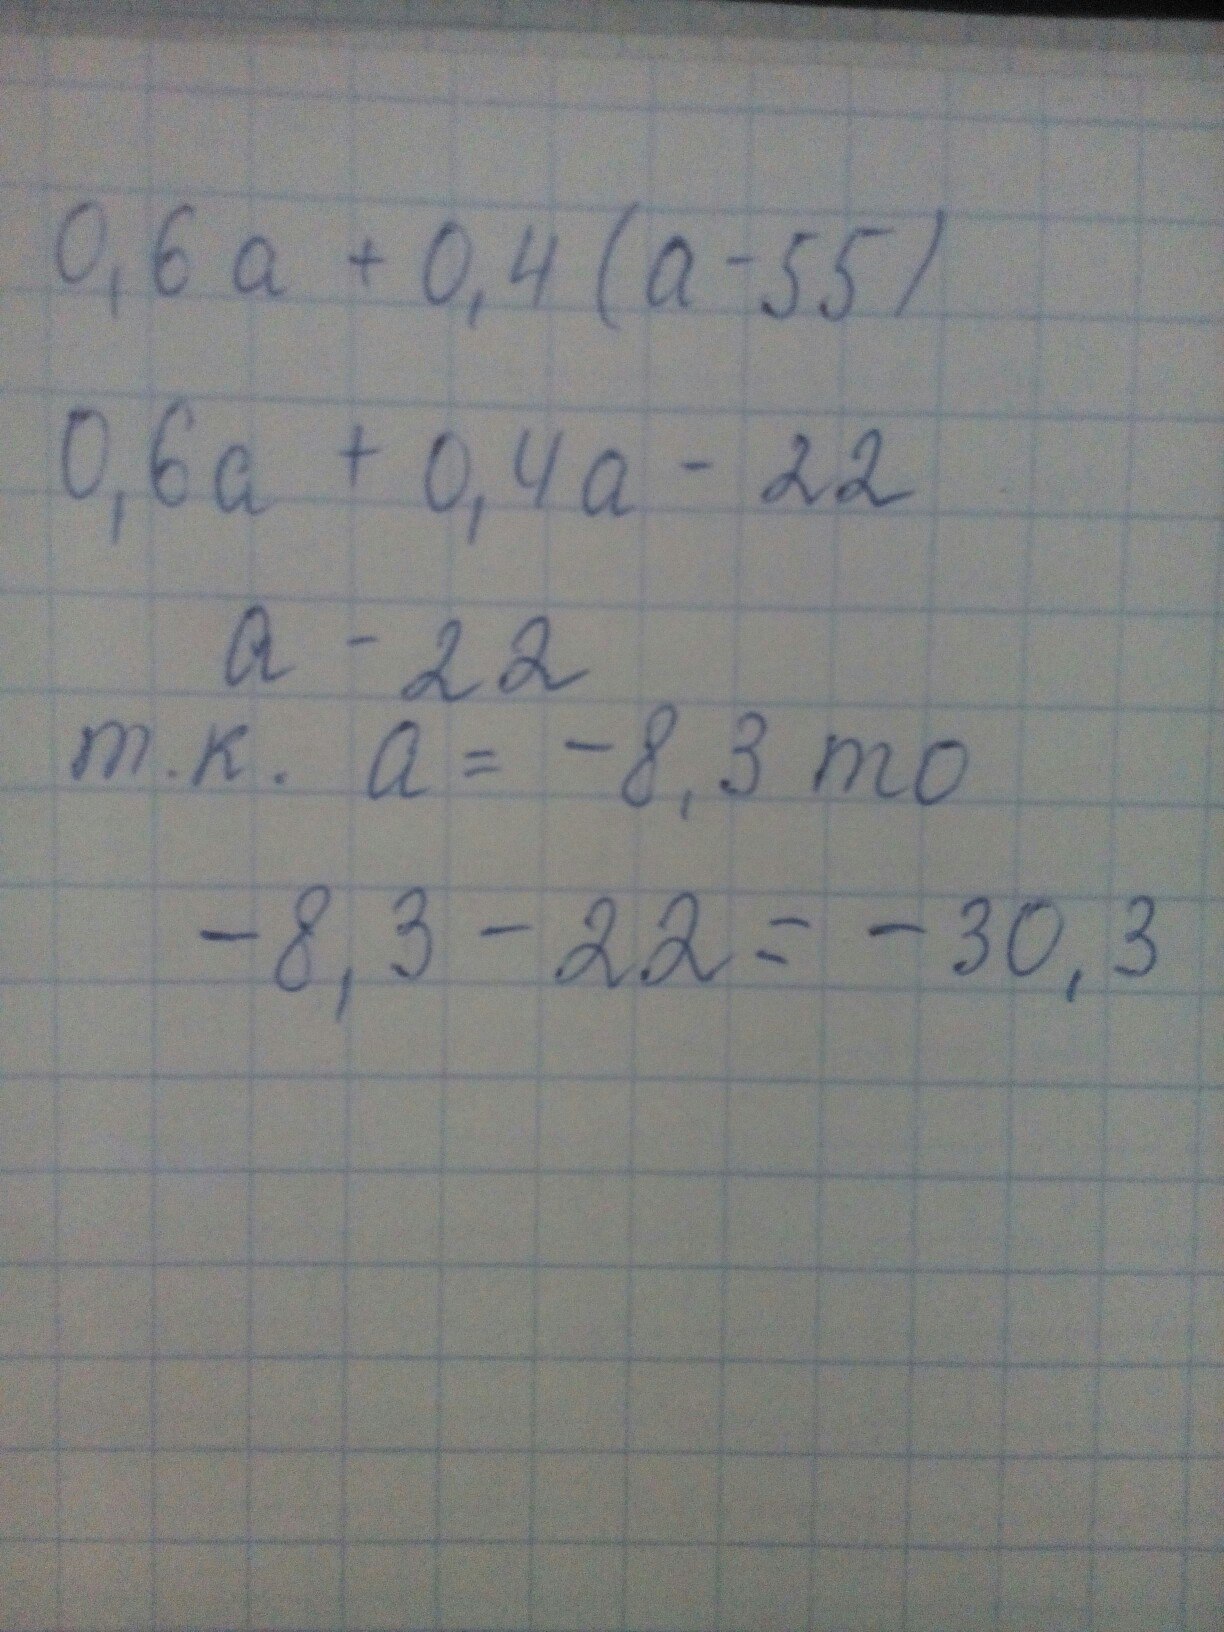 0,6a + 0,4(a-55)
0,6a + 0,4a - 22
a - 22
т.к. a = -8,3 то
-8,3 - 22 = -30,3